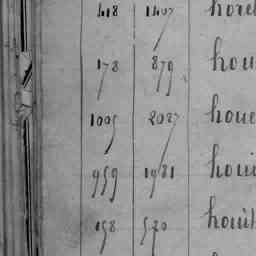 418 1407 
178 879 hou
1005 2027 houe
959 1981 houi
158 520 houil